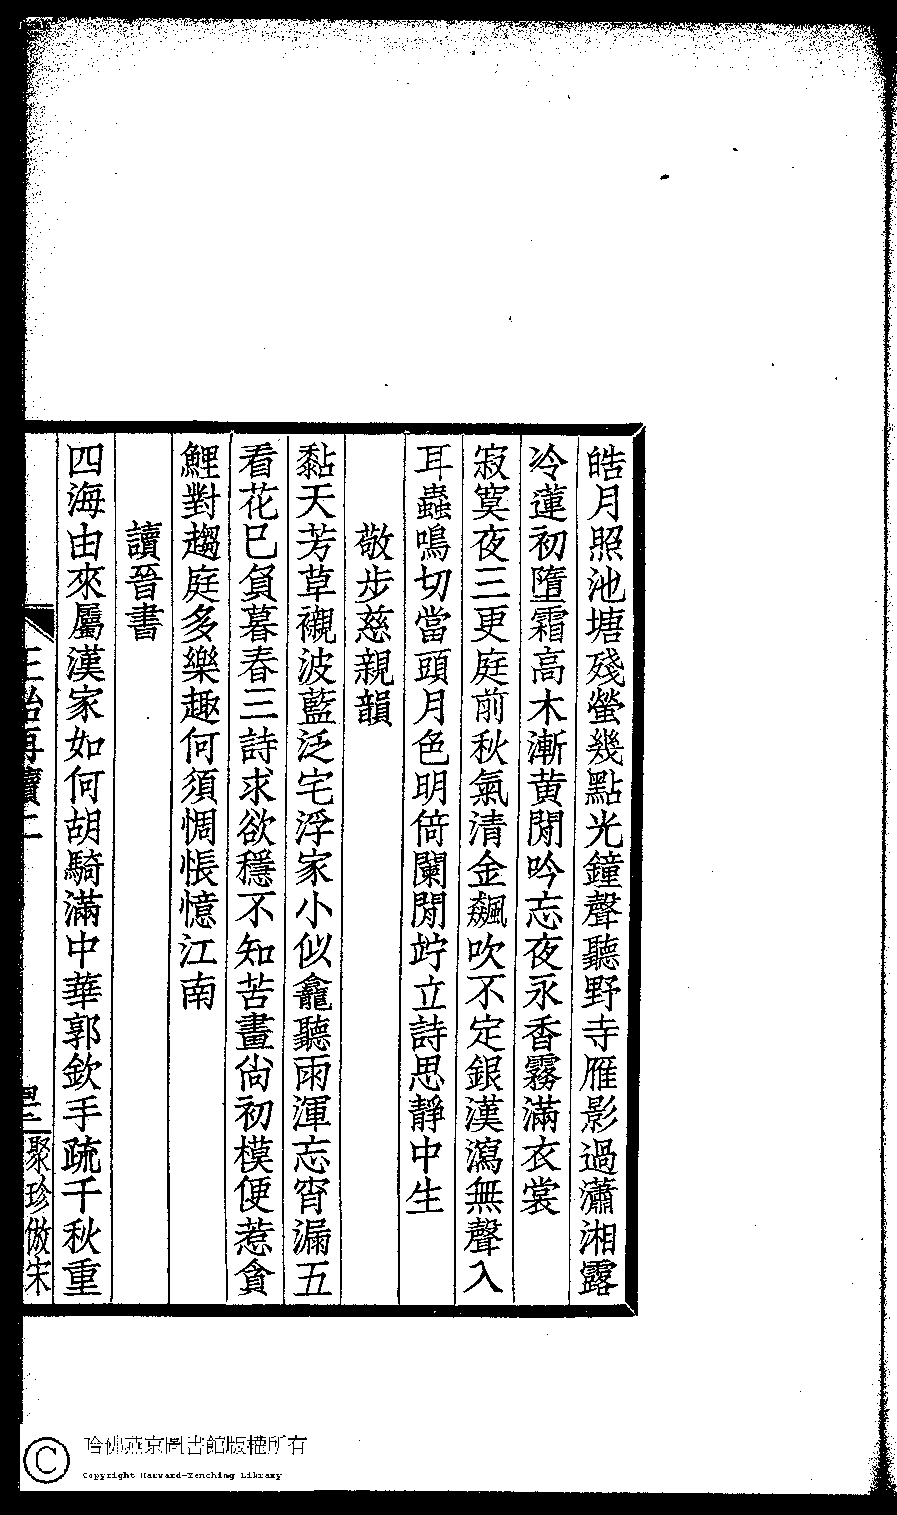 皓月照池塘殘螢幾點光鐘聲聽野寺雁影過瀟湘露
冷蓮初墮霜高木漸黄閒吟忘夜永香霧滿衣裳
寂寞夜三更庭前秋氣清金飆吹不定銀漢瀉無聲入
耳蟲鳴切當頭月色明倚闌閒竚立詩思靜中生
敬步慈親韻
黏天芳草襯波藍泛宅浮家小似龕聽雨渾忘宵漏五
看花巳負暮春三詩求欲穩不知苦畫尙初模便惹貪
鯉對趨庭多樂趣何須惆悵憶江南
讀晉書
四海由來屬漢家如何胡騎滿中華郭欽手疏千秋重
聚珍倣宋
哈佛燕京圖書館版權所有
Copyright Harvard-Yenching Library